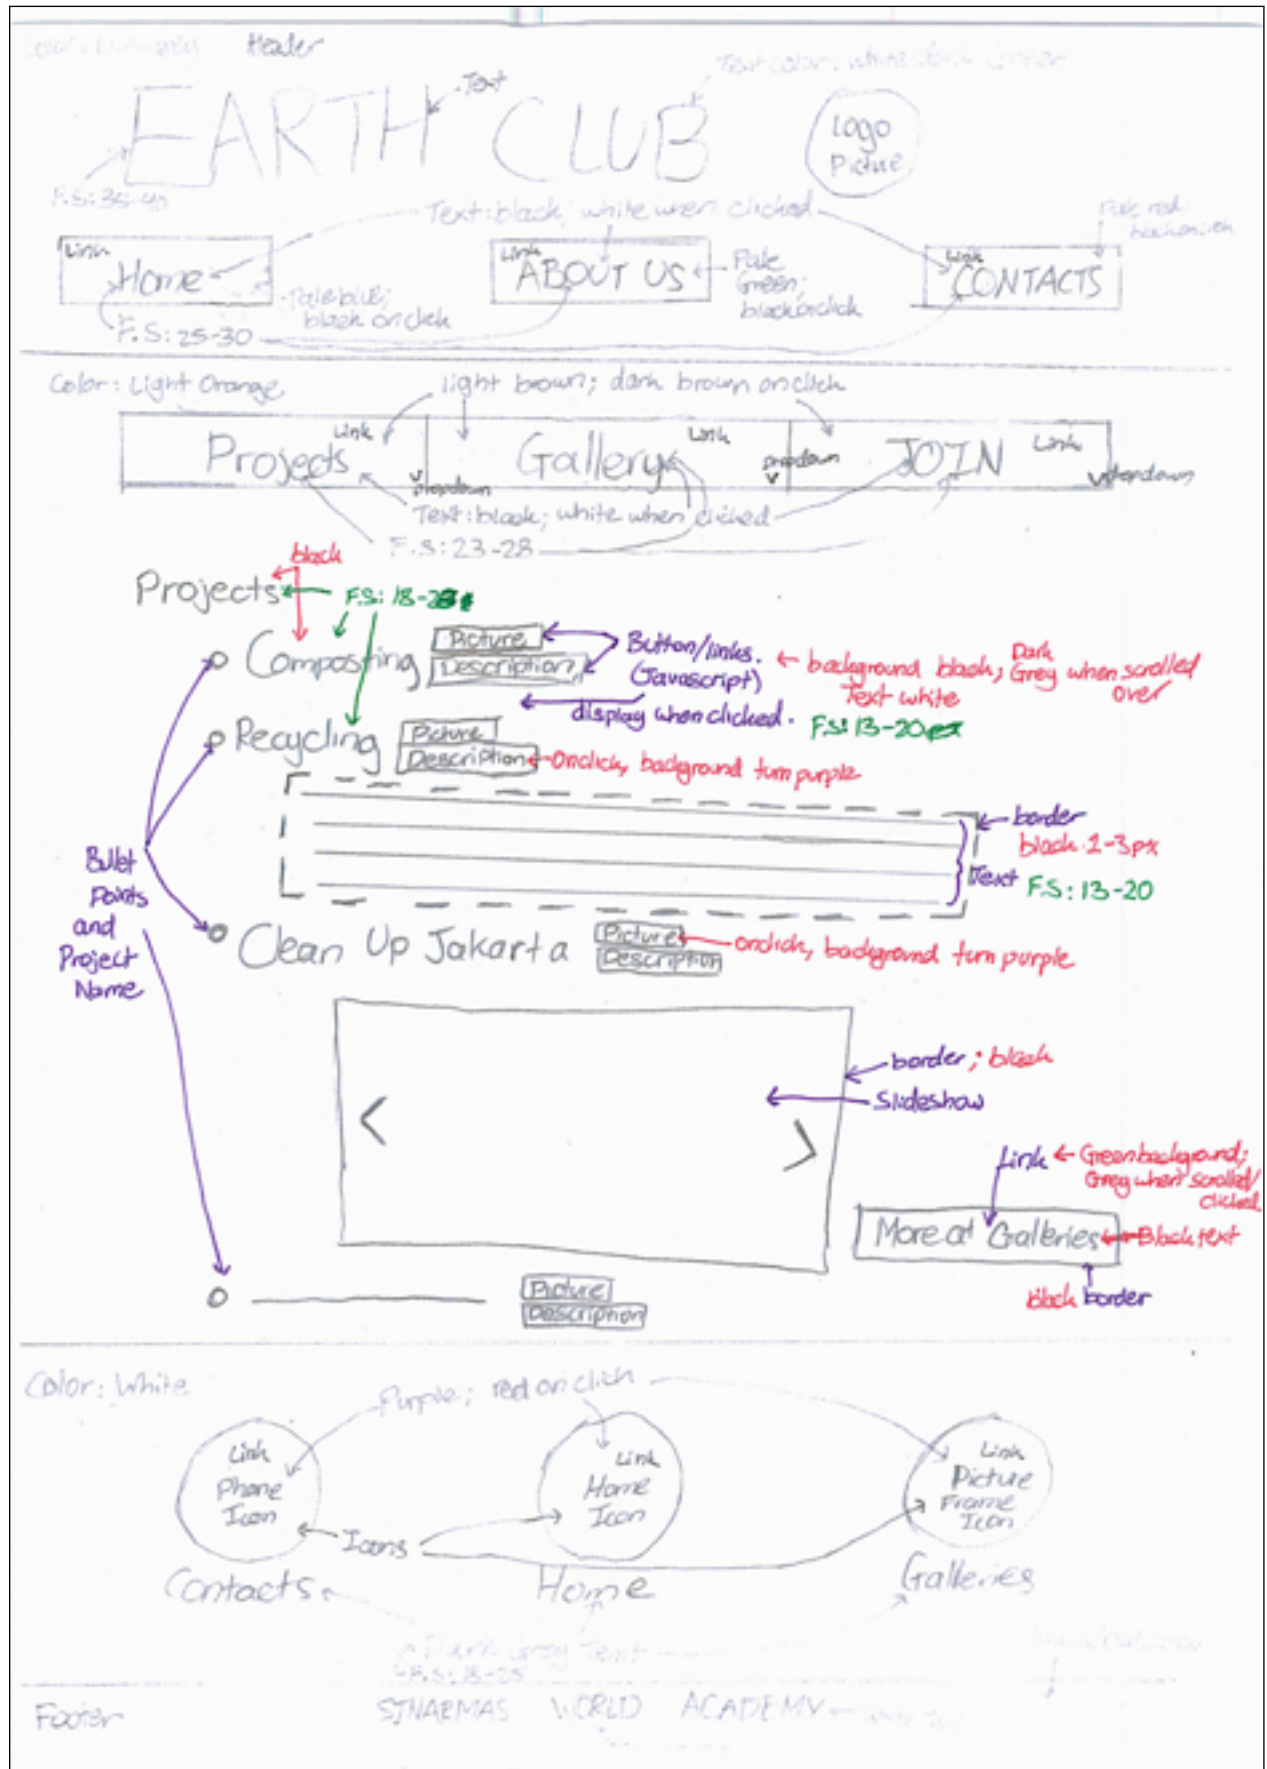 Header
Text color: white/dark Green
Text
EARTH CLUB
Logo
Picture
F.S: 35-40
Text: black; white when clicked
Pale red;
black on click
Link
Home
Link
ABOUT US
Link
CONTACTS
Pale blue;
black on click
Pale
Green;
black on click
F.S: 25-30
Color: Light Orange
light brown; dark brown on click
Projects
Link
dropdown
Gallery
Link
dropdown
JOIN
Link
dropdown
Text: black; white when clicked
F.S: 23-28
black
Projects
F.S: 18-
Composting
Picture
Description
Button/links.
(Javascript)
background black; Dark
Grey when scrolled
over
Text white
display when clicked.
F.S: 13-20px
Recycling
Picture
Description
Onclick, background turn purple
border
black 1-3px
Text
F.S: 13-20
Bullet
Points
and
Project
Name
Clean Up Jakarta
Picture
Description
onclick, background turn purple
<
>
border; black
Slideshow
Link
Green background;
Grey when scrolled/
clicked
More at Galleries
Black text
black border
Picture
Description
Color: White
Purple; red on click
Link
Phone
Icon
Link
Home
Icon
Link
Picture
Frame
Icon
Icons
Contacts
Home
Galleries
Dark Grey Text
F.S: 18-25
Footer
SINARMAS WORLD ACADEMY